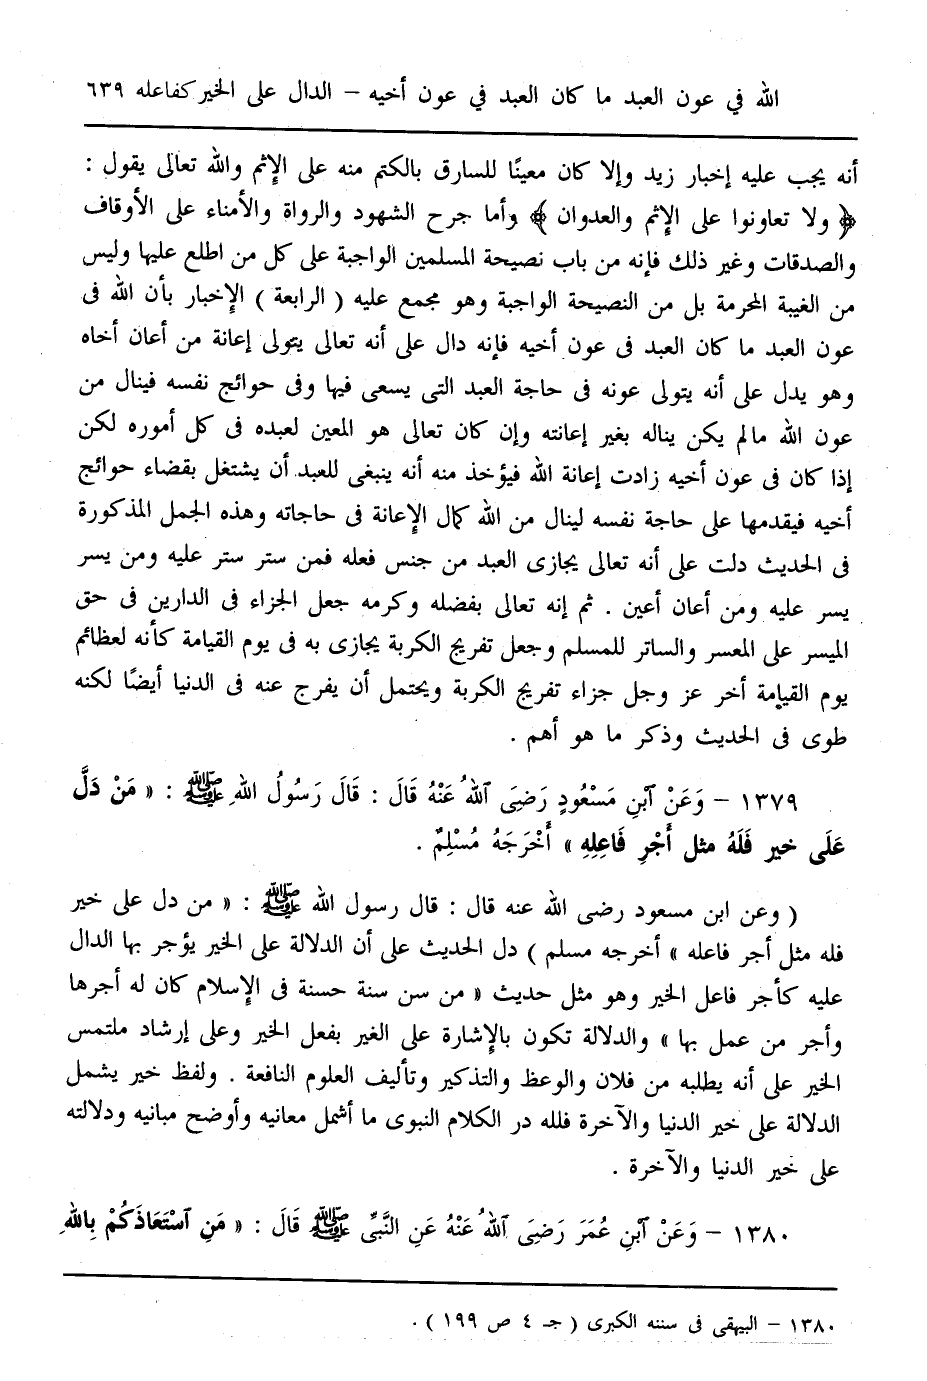 الله في عون العبد ما كان العبد في عون أخيه – الدال على الخير كفاعله ٦٣٩
أنه يجب عليه إخبار زيد وإلا كان معينًا للسارق بالكتم منه على الإثم والله تعالى يقول :
﴿ ولا تعاونوا على الإثم والعدوان ﴾ وأما جرح الشهود والرواة والأمناء على الأوقاف
والصدقات وغير ذلك فإنه من باب نصيحة المسلمين الواجبة على كل من اطلع عليها وليس
من الغيبة المحرمة بل من النصيحة الواجبة وهو مجمع عليه ( الرابعة ) الإخبار بأن الله فى
عون العبد ما كان العبد فى عون أخيه فإنه دال على أنه تعالى يتولى إعانة من أعان أخاه
وهو يدل على أنه يتولى عونه فى حاجة العبد التى يسعى فيها وفى حوائج نفسه فينال من
عون الله مالم يكن يناله بغير إعانته وإن كان تعالى هو المعين لعبده فى كل أموره لكن
إذا كان فى عون أخيه زادت إعانة الله فيؤخذ منه أنه ينبغى للعبد أن يشتغل بقضاء حوائج
أخيه فيقدمها على حاجة نفسه لينال من الله كمال الإعانة فى حاجاته وهذه الجمل المذكورة
فى الحديث دلت على أنه تعالى يجازى العبد من جنس فعله فمن ستر ستر عليه ومن يسر
يسر عليه ومن أعان أعين . ثم إنه تعالى بفضله وكرمه جعل الجزاء فى الدارين فى حق
الميسر على المعسر والساتر للمسلم وجعل تفريج الكربة يجازى به فى يوم القيامة كأنه لعظائم
يوم القيامة أخر عز وجل جزاء تفريج الكربة ويحتمل أن يفرج عنه فى الدنيا أيضًا لكنه
طوى فى الحديث وذكر ما هو أهم .
١٣٧٩ – وَعَنْ ٱبْنِ مَسْعُودٍ رَضِيَ ٱللهُ عَنْهُ قَالَ : قَالَ رَسُولُ اللهِ ﷺ : « مَنْ دَلَّ
عَلَى خير فَلَهُ مثل أَجْرِ فَاعِلِهِ » أَخْرَجَهُ مُسْلِمٌ .
( وعن ابن مسعود رضى الله عنه قال : قال رسول الله ﷺ : « من دل على خير
فله مثل أجر فاعله » أخرجه مسلم ) دل الحديث على أن الدلالة على الخير يؤجر بها الدال
عليه كأجر فاعل الخير وهو مثل حديث « من سن سنة حسنة فى الإسلام كان له أجرها
وأجر من عمل بها » والدلالة تكون بالإشارة على الغير بفعل الخير وعلى إرشاد ملتمس
الخير على أنه يطلبه من فلان والوعظ والتذكير وتأليف العلوم النافعة . ولفظ خير يشمل
الدلالة على خير الدنيا والآخرة فلله در الكلام النبوى ما أشمل معانيه وأوضح مبانيه ودلالته
على خير الدنيا والآخرة .
١٣٨٠ – وَعَنْ ٱبْنِ عُمَرَ رَضِيَ ٱللهُ عَنْهُ عَنِ النَّبِيِّ ﷺ قَالَ : « مَنِ ٱسْتَعَاذَكُمْ بِاللهِ
١٣٨٠ – البيهقى فى سننه الكبرى ( جـ ٤ ص ١٩٩ ) .